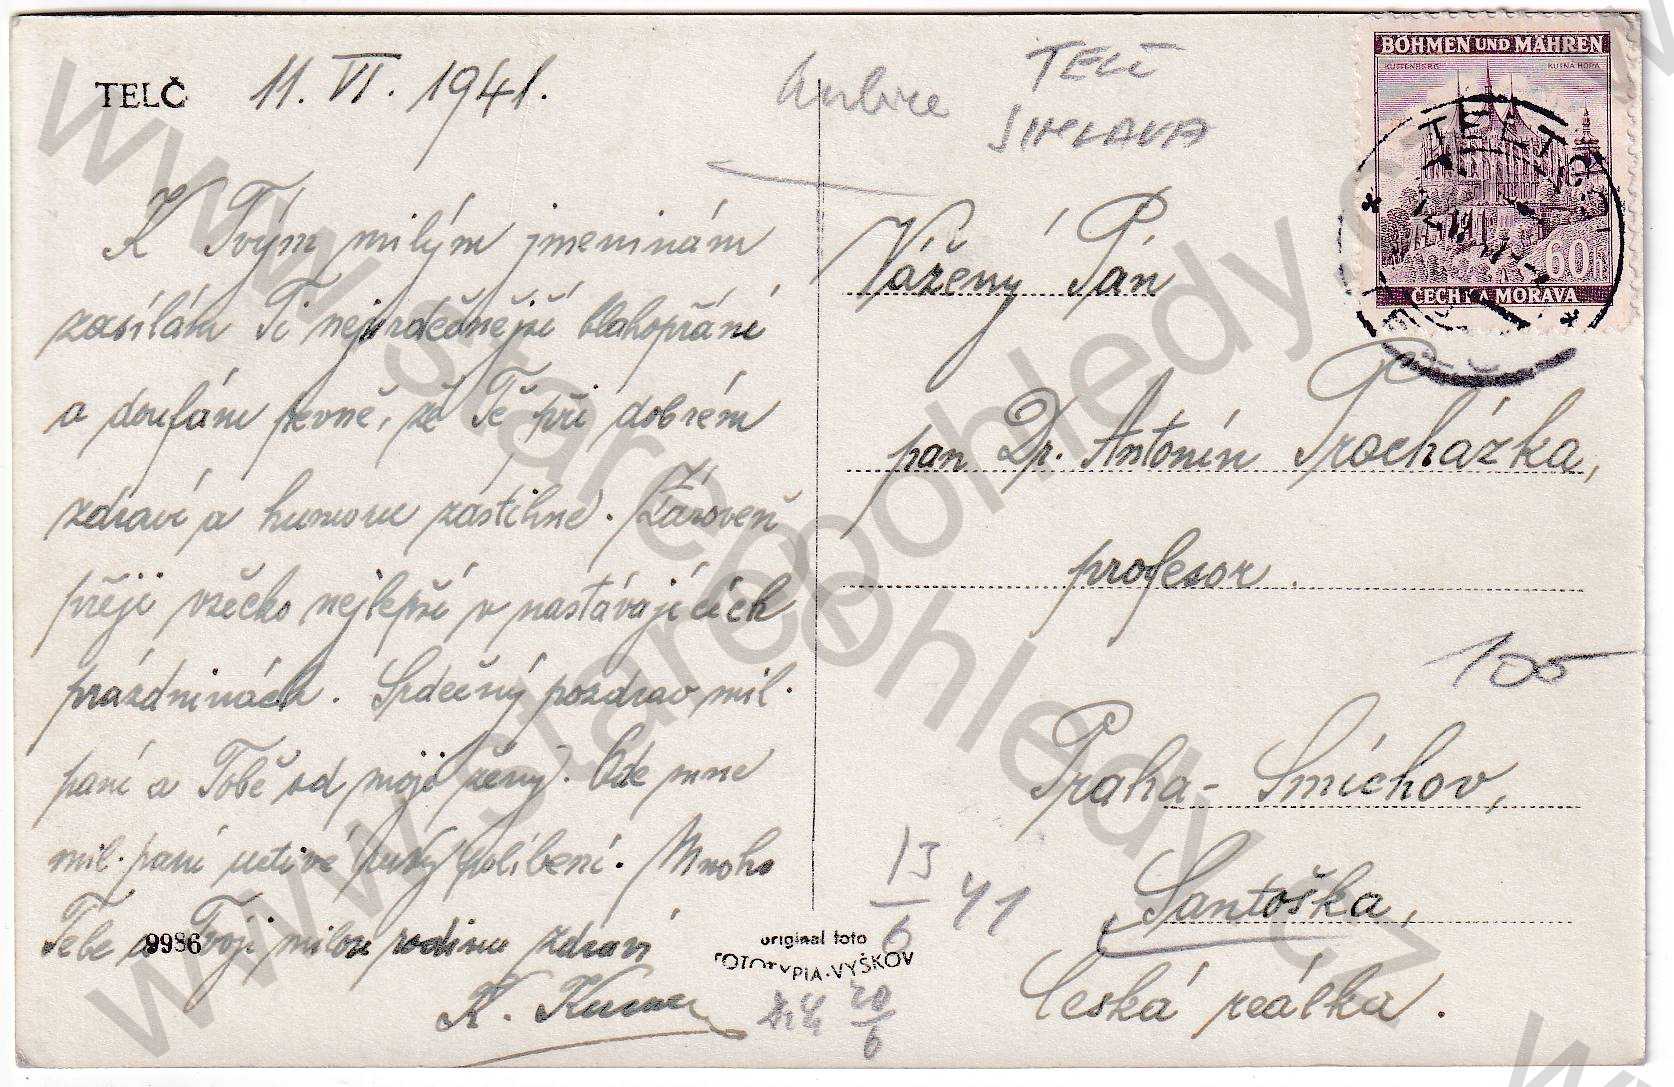 TELČ 11. VI. 1941.
K Tvým milým jmeninám
zasílám Ti nejsrdečnější blahopřání
a doufám pevně, že Tě při dobrém
zdraví a humoru zastihne. Zároveň
přeji všecko nejlepší v nastávajících
prázdninách. Srdečný pozdrav mil.
paní a Tobě od mojí ženy. Ode mne
mil. paní uctivé ruky políbení. Mnoho
Tebe a Tvoji milou rodinu zdraví
9986
K.
original foto
FOTOTYPIA-VYŠKOV
TELČ
JIHLAVA
BÖHMEN UND MÄHREN
KUTTENBERG KUTNÁ HORA
60h
ČECHY A MORAVA
Vážený Pán
pan Dr. Antonín Procházka,
profesor.
100
Praha-Smíchov,
Santoška,
Česká reálka.
13/6 41
20/6
www.starepohledy.cz
www.starepohledy.cz